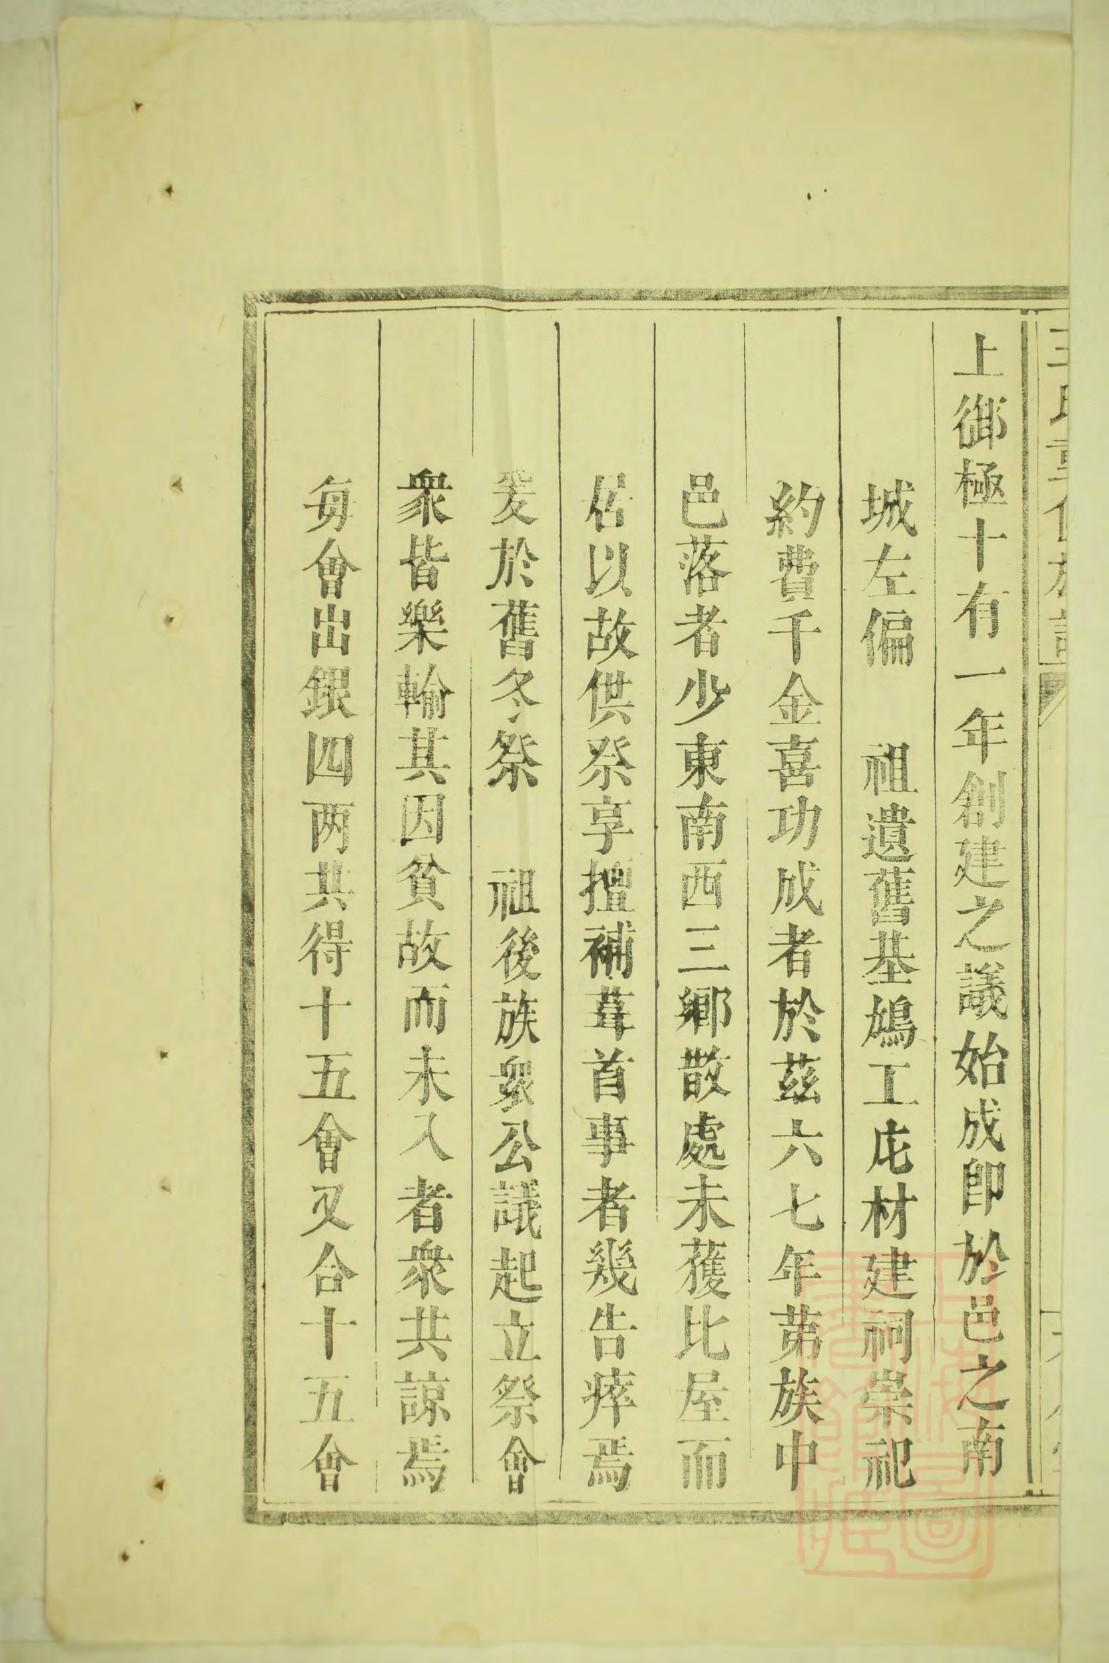 上御極十有一年創建之議始成卽於邑之南
城左偏　祖遺舊基鳩工庀材建祠崇祀
約費千金喜功成者於茲六七年苐族中
邑落者少東南西三鄉散處未獲比屋而
居以故供祭享擅補葺首事者幾告瘁焉
爰於舊冬祭　祖後族衆公議起立祭會
衆皆樂輸其因貧故而未入者衆共諒焉
每會出銀四两共得十五會又合十五會